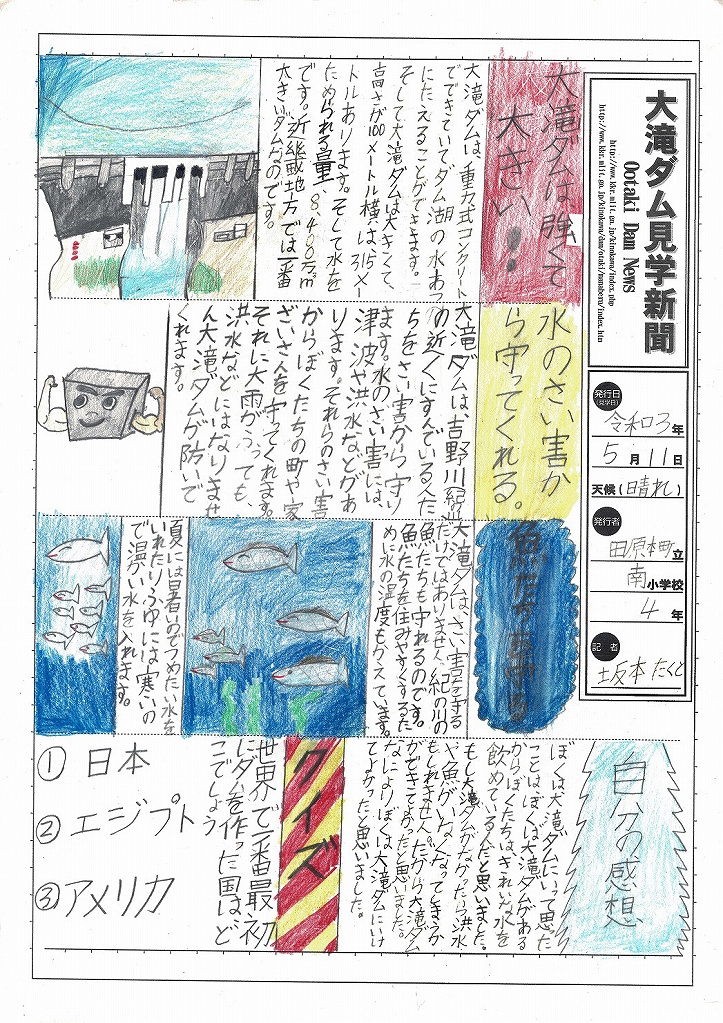 大滝ダム見学新聞
Ootaki Dam News
http://www.kkr.mlit.go.jp/kinokawa/index.php
http://www.kkr.mlit.go.jp/kinokawa/dam/otaki/manaberu/index.htm
発行日
(見学日)
令和3年
5月11日
天候(晴れ)
発行者
田原本町立
南小学校
4年
記者
坂本たくと
大滝ダムは強くて
大きい!!
大滝ダムは、重力式コンクリート
でできていてダム湖の水あつ
にたえることができます。
そして大滝ダムは大きくて、
高さが100メートル横はば315メー
トルあります。そして水を
ためられる量8,400万m³
です。近畿地方では一番
大きいダムなのです。
水のさい害か
ら守ってくれる。
大滝ダムは、吉野川(紀の川)
の近くにすんでいる人た
ちをさい害から守り
ます。水のさい害には、
津波や洪水などがあ
ります。それらのさい害
からぼくたちの町や家
ざいさんを守ってくれます。
それに大雨がふっても、
洪水などにはなりませ
ん大滝ダムが防いで
くれます。
魚たちも守る
大滝ダムは、さい害を守る
だけではありません、紀の川の
魚たちも守れるのです。
魚たちを住みやすくするた
めに水の温度もかえています。
夏には暑いのでつめたい水を
いれたりふゆには寒いの
で温かい水を入れます。
自分の感想
ぼくは大滝ダムにいって思った
ことは、ぼくは大滝ダムがある
からぼくたちはきれいな水を
飲めているんだと思いました。
もし大滝ダムがなかったら洪水
や魚がいなくなってしまうか
もしれません。だから大滝ダム
ができてよかったと思いました。
なによりぼくは大滝ダムにいけ
てよかったと思いました。
クイズ
世界で一番最初
にダムを作った国はど
こでしょう
① 日本
② エジプト
③ アメリカ